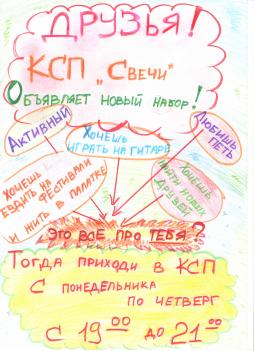 ДРУЗЬЯ!
КСП „Свечи"
ОБЪЯВЛЯЕТ НОВЫЙ НАБОР!
АКТИВНЫЙ
ХОЧЕШЬ
ИГРАТЬ НА ГИТАРЕ
ЛЮБИШЬ
ПЕТЬ
ХОЧЕШЬ
ЕЗДИТЬ НА
ФЕСТИВАЛИ
И ЖИТЬ В ПАЛАТКЕ
ХОЧЕШЬ
НАЙТИ НОВЫХ
ДРУЗЕЙ
ЭТО ВСЁ ПРО ТЕБЯ?
ТОГДА ПРИХОДИ В КСП
С ПОНЕДЕЛЬНИКА
ПО ЧЕТВЕРГ
С 19 00 ДО 21 00